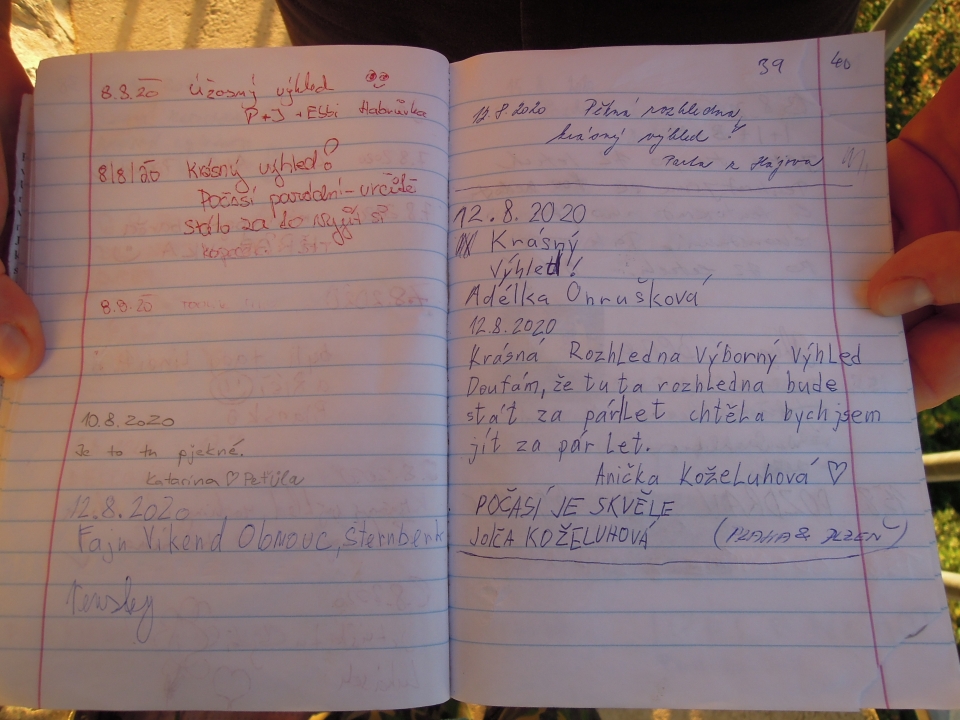 8.8.20 Úžasný výhled
P+J + Ebbi Habrůvka
8/8/20 Krásný výhled!
Počasí parádní - určitě
stálo za to
8.8.20
10.8.2020
Je to tu pjekné.
Katarina ♡ Petúla
12.8.2020
Fajn Víkend Olomouc, Šternberk
39 40
12.8.2020 Pěkná rozhledna,
krásný výhled!
Pavla z Hájova
12.8.2020
Krásný
Výhled!
Adélka Ohrušková
12.8.2020
Krásná Rozhledna Výborný Výhled
Doufám, že tuta rozhledna bude
stát za párlet chtěla bych jsem
jít za pár let.
Anička Koželuhová ♡
POČASÍ JE SKVĚLE
JOLČA KOŽELUHOVÁ (PRAHA & PLZEŇ)